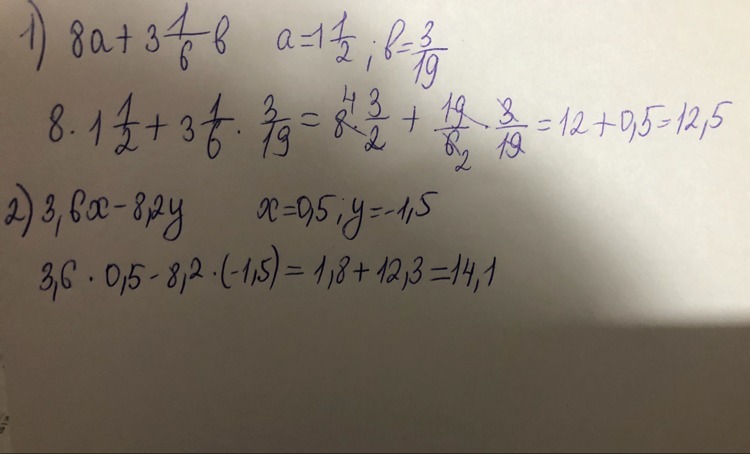 1) 8a + 3 1/6 в   a = 1 1/2 ; в = 3/19
8 · 1 1/2 + 3 1/6 · 3/19 = 8 4 3/2 + 19/6 2 · 3/19 = 12 + 0,5 = 12,5
2) 3,6x - 8,2y   x = 0,5 ; y = -1,5
3,6 · 0,5 - 8,2 · (-1,5) = 1,8 + 12,3 = 14,1